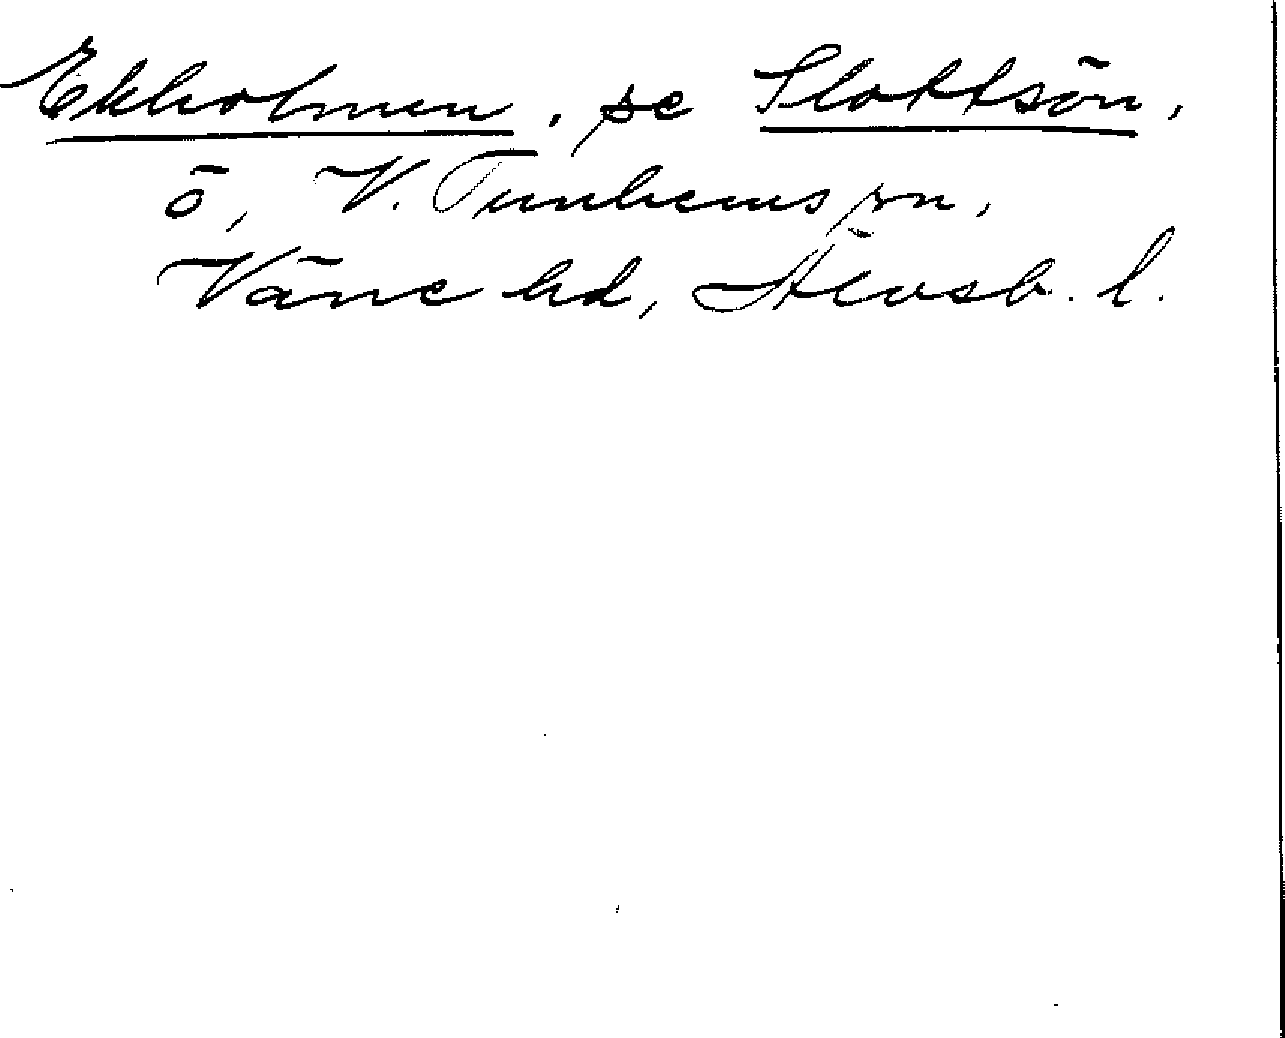 Ekholmen, se Slottsön,
ö, V. Tunhems sn,
Väne hd, Älvsb. l.